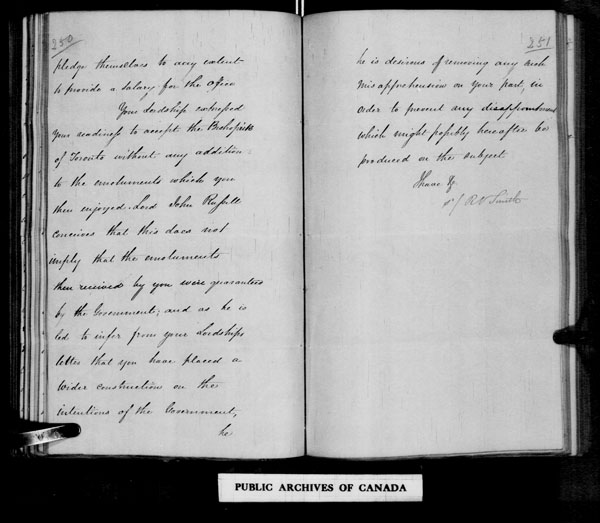 250
pledge themselves to any extent
to provide a salary for the office
Your Lordship expressed
your readiness to accept the Bishopric
of Toronto without any addition
to the emoluments which you
then enjoyed. Lord John Russell
conceives that this does not
imply that the emoluments
then received by you were guaranteed
by the Government; and as he is
led to infer from your Lordships
letter that you have placed a
wider construction on the
intentions of the Government,
he
251
he is desirous of removing any such
misapprehension on your part, in
order to prevent any disappointment
which might possibly hereafter be
produced on the subject
I have &c.
s/ R V Smith
PUBLIC ARCHIVES OF CANADA